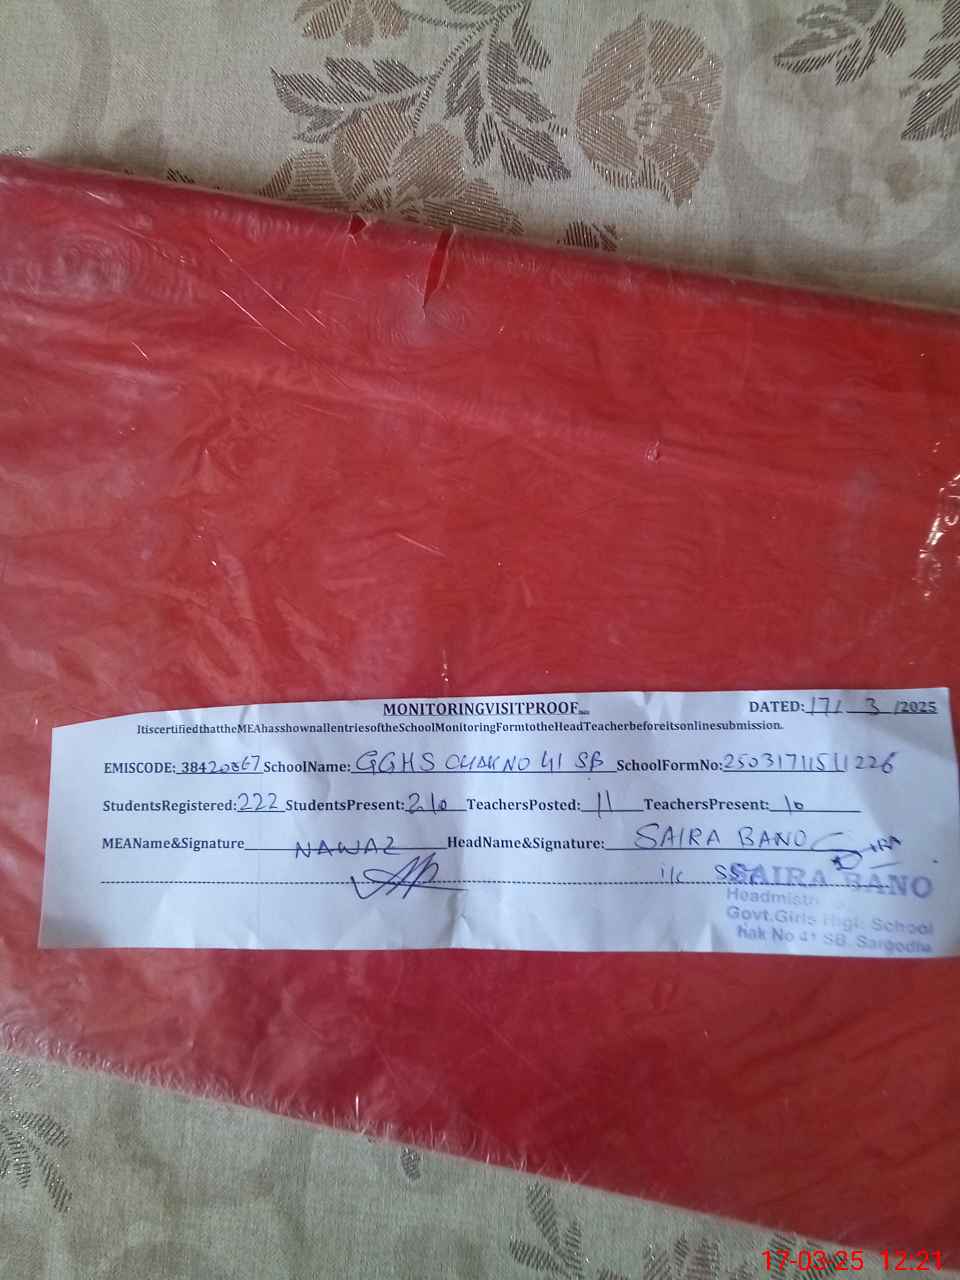 MONITORINGVISITPROOF DATED: 17/ 3 /2025
ItiscertifiedthattheMEAhasshownallentriesoftheSchoolMonitoringFormtotheHeadTeacherbeforeitsonlinesubmission.
EMISCODE: 38420867 SchoolName: GGHS CHAK NO 41 SB SchoolFormNo: 25031711511226
StudentsRegistered: 222 StudentsPresent: 210 TeachersPosted: 11 TeachersPresent: 10
MEAName&Signature NAWAZ HeadName&Signature: SAIRA BANO
i/c SAIRA BANO
Headmistr
Govt.Girls High School
hak No 41 SB. Sargodha
17-03-25 12:21